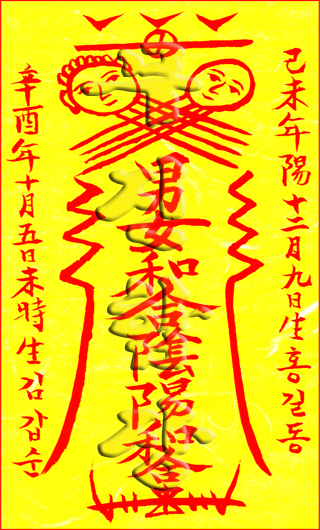 己未年陽十二月九日生홍길동
男女和合陰陽和合
辛酉年十月五日未時生김갑순